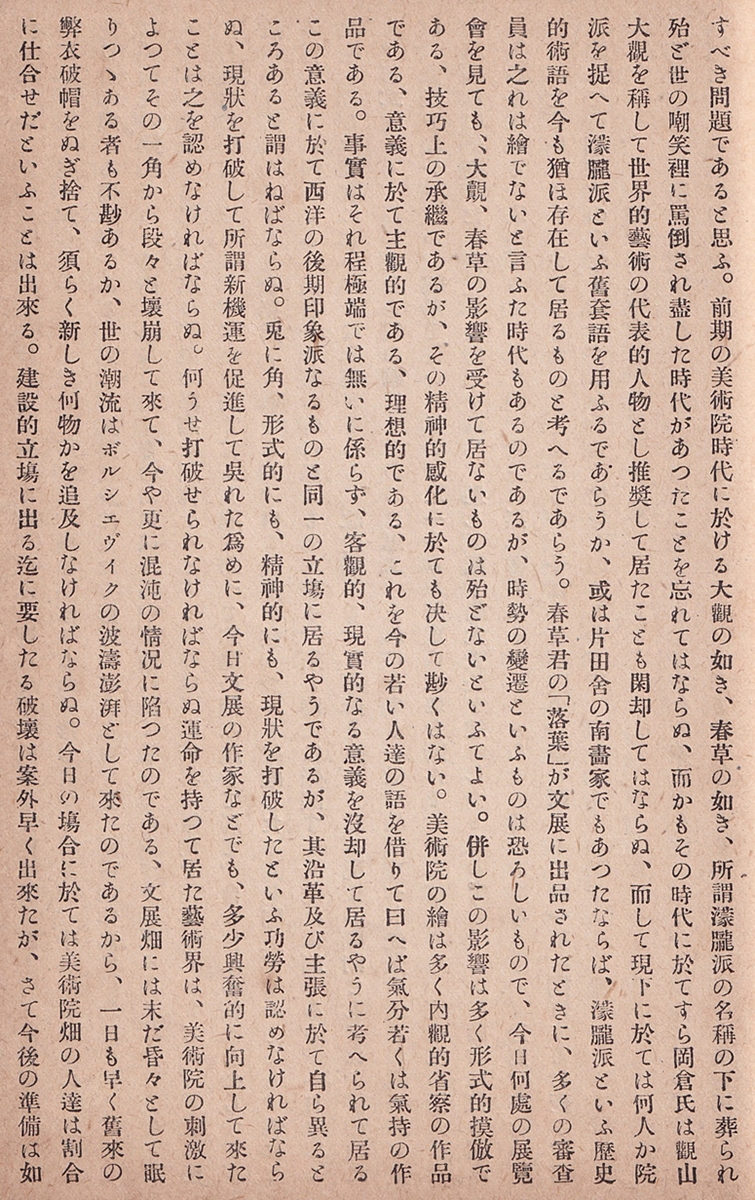 すべき問題であると思ふ。前期の美術院時代に於ける大觀の如き、春草の如き、所謂濛朧派の名稱の下に葬られ
殆ど世の嘲笑裡に罵倒され盡した時代があつたことを忘れてはならぬ、而かもその時代に於てすら岡倉氏は觀山
大觀を稱して世界的藝術の代表的人物とし推奬して居たことも閑却してはならぬ、而して現下に於ては何人か院
派を捉へて濛朧派といふ舊套語を用ふるであらうか、或は片田舍の南畵家でもあつたならば、濛朧派といふ歷史
的術語を今も猶ほ存在して居るものと考へるであらう。春草君の「落葉」が文展に出品されたときに、多くの審査
員は之れは繪でないと言ふた時代もあるのであるが、時勢の變遷といふものは恐ろしいもので、今日何處の展覽
會を見ても、大觀、春草の影響を受けて居ないものは殆どないといふてよい。併しこの影響は多く形式的摸倣で
ある、技巧上の承繼であるが、その精神的感化に於ても决して尠くはない。美術院の繪は多く內觀的省察の作品
である、意義に於て主觀的である、理想的である、これを今の若い人達の語を借りて曰へば氣分若くは氣持の作
品である。事實はそれ程極端では無いに係らず、客觀的、現實的なる意義を沒却して居るやうに考へられて居る
この意義に於て西洋の後期印象派なるものと同一の立塲に居るやうであるが、其沿革及び主張に於て自ら異ると
ころあると謂はねばならぬ。兎に角、形式的にも、精神的にも、現狀を打破したといふ功勞は認めなければなら
ぬ、現狀を打破して所謂新機運を促進して吳れた爲めに、今日文展の作家などでも、多少興奮的に向上して來た
ことは之を認めなければならぬ。何うせ打破せられなければならぬ運命を持つて居た藝術界は、美術院の刺激に
よつてその一角から段々と壞崩して來て、今や更に混沌の情况に陷つたのである、文展畑には末だ昏々として眠
りつゝある者も不尠あるか、世の潮流はボルシエヴイクの波濤澎湃として來たのであるから、一日も早く舊來の
弊衣破帽をぬぎ捨て、須らく新しき何物かを追及しなければならぬ。今日の塲合に於ては美術院畑の人達は割合
に仕合せだといふことは出來る。建設的立塲に出る迄に要したる破壞は案外早く出來たが、さて今後の準備は如